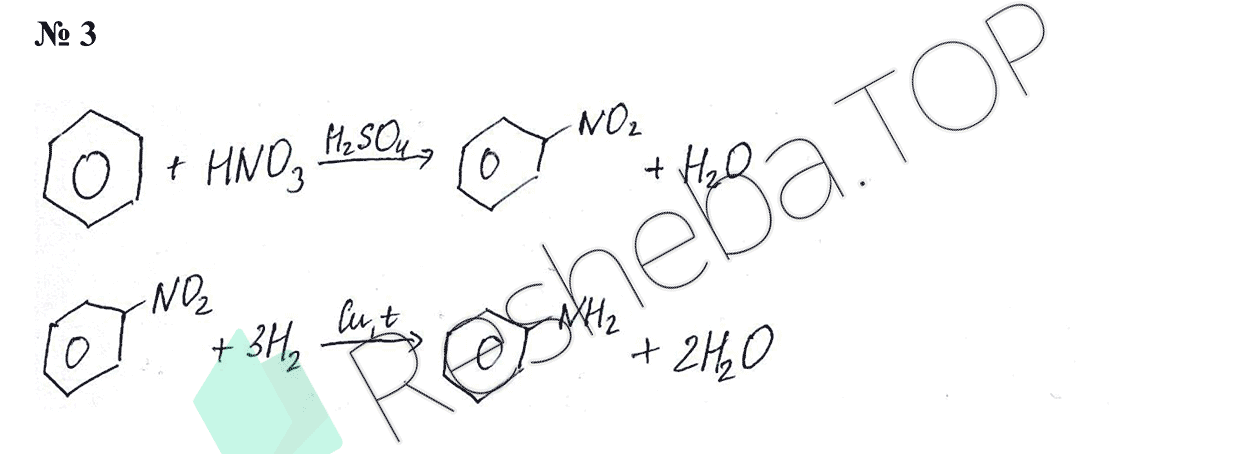 № 3
+ HNO₃ H₂SO₄ → NO₂ + H₂O
NO₂ + 3H₂ Cu, t → NH₂ + 2H₂O
Resheba.TOP